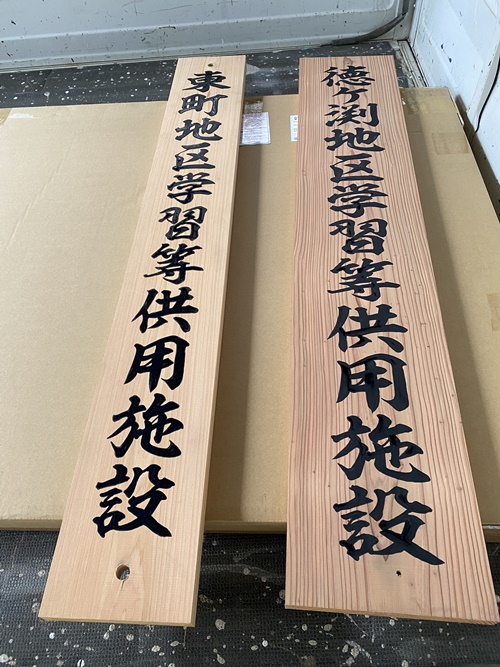 徳ヶ渕地区学習等供用施設
東町地区学習等供用施設